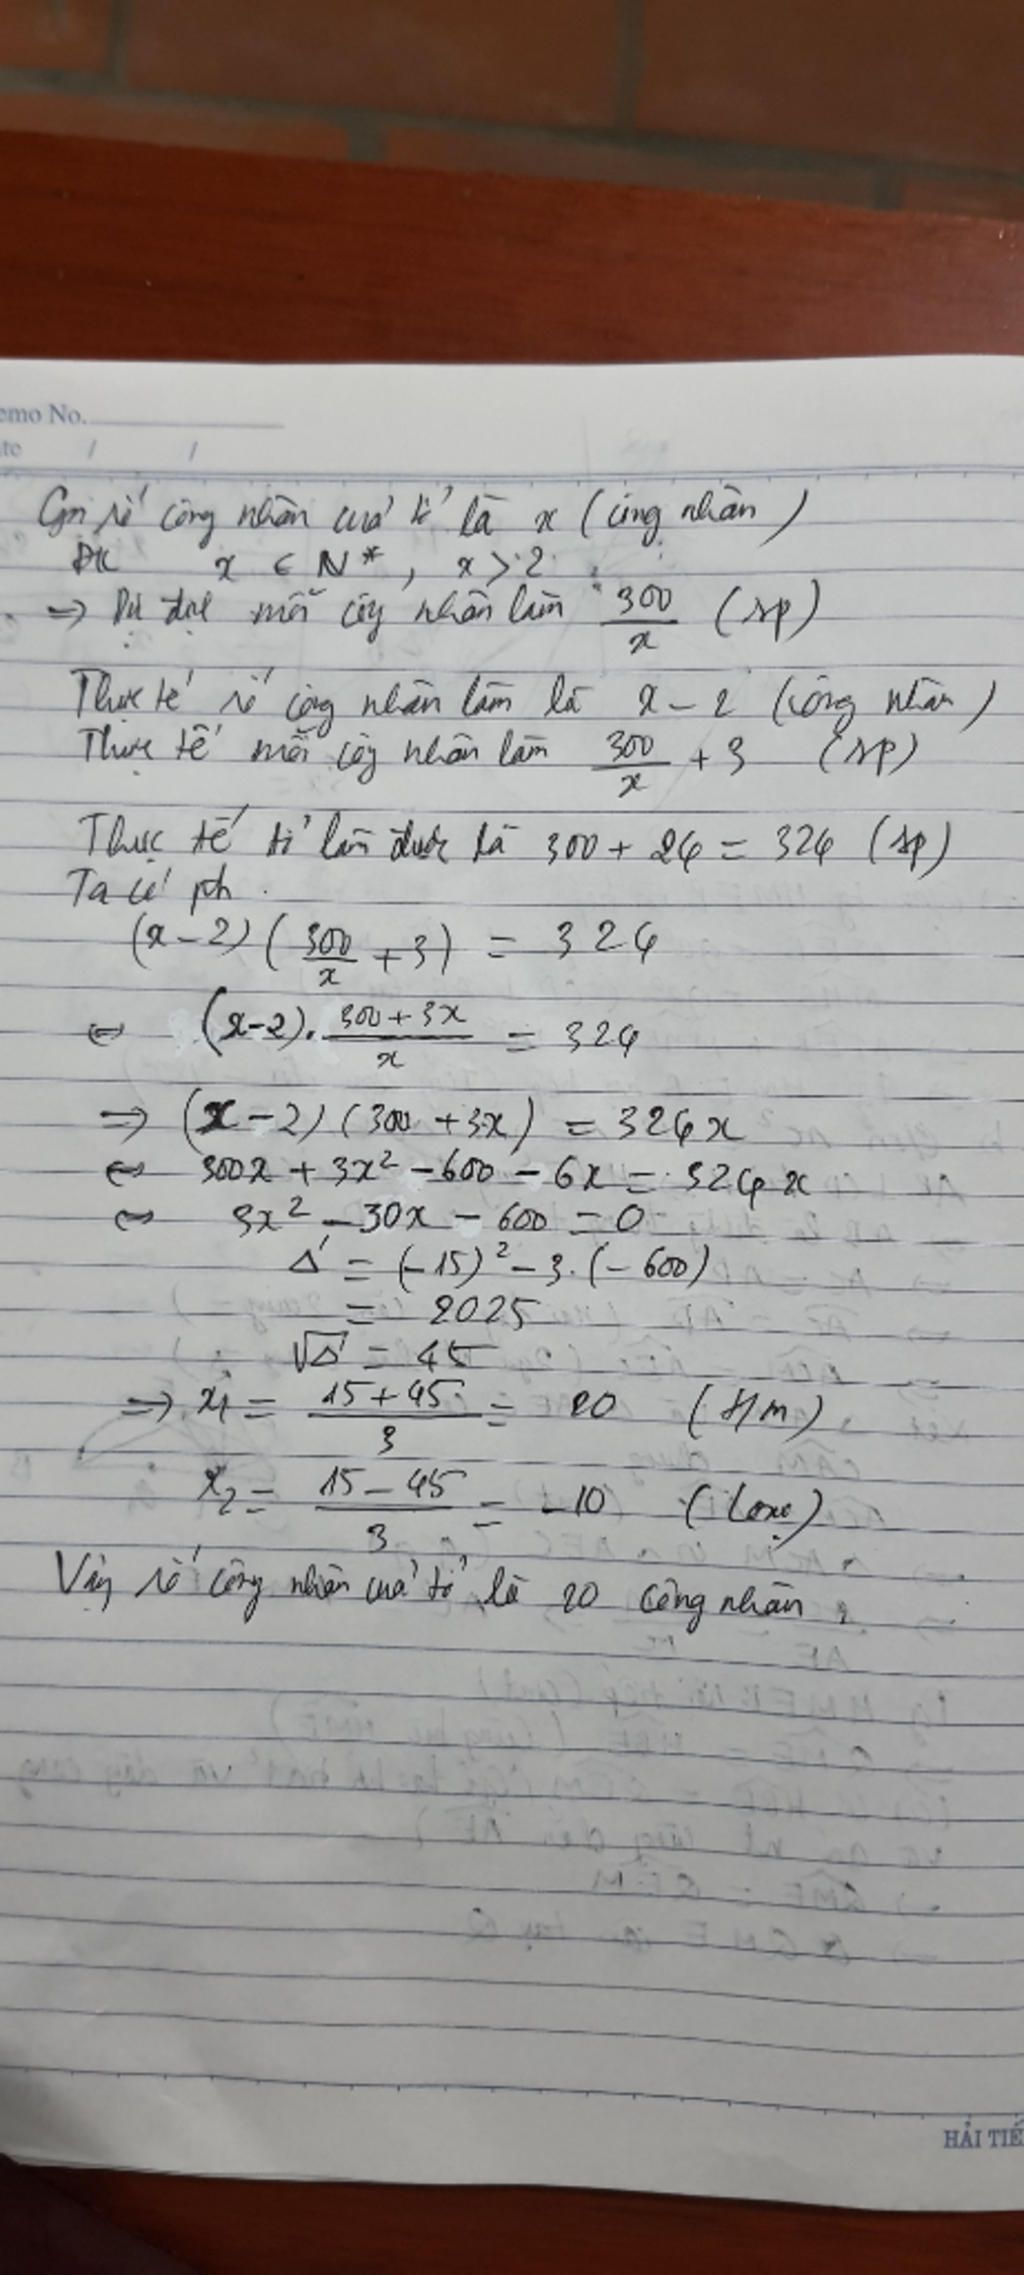 emo No.
te / /
Gọi số công nhân của tổ là x (công nhân)
ĐK x ∈ N*, x > 2
=> Dự định mỗi công nhân làm 300/x (sp)
Thực tế số công nhân làm là x - 2 (công nhân)
Thực tế mỗi công nhân làm 300/x + 3 (sp)
Thực tế tổ làm được là 300 + 24 = 324 (sp)
Ta có pt
(x - 2) (300/x + 3) = 324
⇔ (x-2) . (300 + 3x)/x = 324
=> (x - 2) (300 + 3x) = 324x
⇔ 300x + 3x² - 600 - 6x = 324x
⇔ 3x² - 30x - 600 = 0
Δ' = (-15)² - 3. (-600)
= 2025
√Δ' = 45
=> x₁ = (15 + 45)/3 = 20 (t/m)
x₂ = (15 - 45)/3 = -10 (Loại)
Vậy số công nhân của tổ là 20 công nhân.
HẢI TIẾ